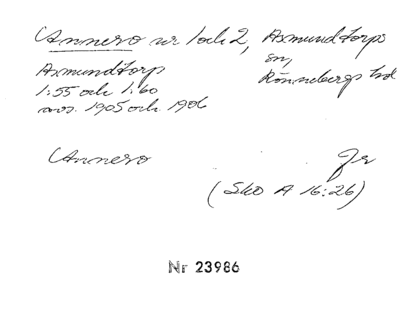 Annero nr 1 och 2, Asmundtorps
sn,
Asmundtorp Rönnebergs hd
1:55 och 1:60
avs. 1905 och 1906
Annero Jr
(Sko A 16:26)
Nr 23986